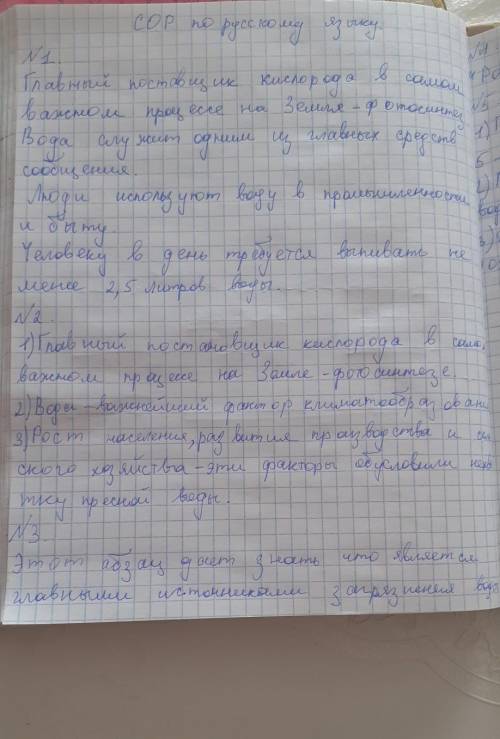 СОР по русскому языку.
№1.
Главный поставщик кислорода в самом
важном процессе на Земле - фотосинтез
Вода служит одним из главных средств
сообщения.
Люди используют воду в промышленности
и быту.
Человеку в день требуется выпивать не
менее 2,5 литров воды.
№2.
1) Главный постановщик кислорода в само
важном процессе на Земле - фотосинтезе.
2) Вода - важнейший фактор климатообразовани
3) Рост населения, развития производства и
ского хозяйства - эти факторы обусловили
тку пресной воды.
№3
Этот абзац дает знать что является
главными источниками загрязнения воды
№4
№5
1)
5
2)
3)